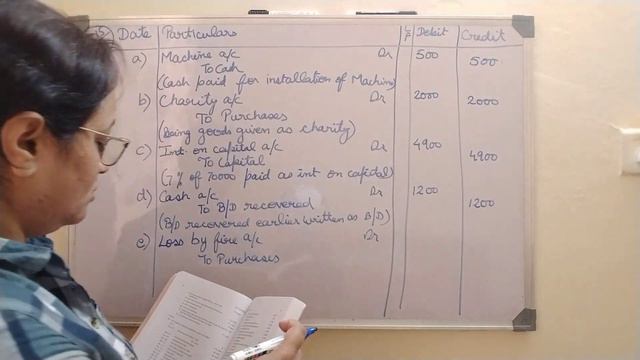 15) Date Particulars L.F Debit Credit
a) Machine a/c Dr 500
To Cash 500
(Cash paid for installation of Machine)
b) Charity a/c Dr 2000
To Purchases 2000
(Being goods given as charity)
c) Int. on capital a/c Dr 4900
To Capital 4900
(7% of 70000 paid as int on capital)
d) Cash a/c Dr 1200
To B/D recovered 1200
(B/D recovered earlier written as B/D)
e) Loss by fire a/c Dr
To Purchases